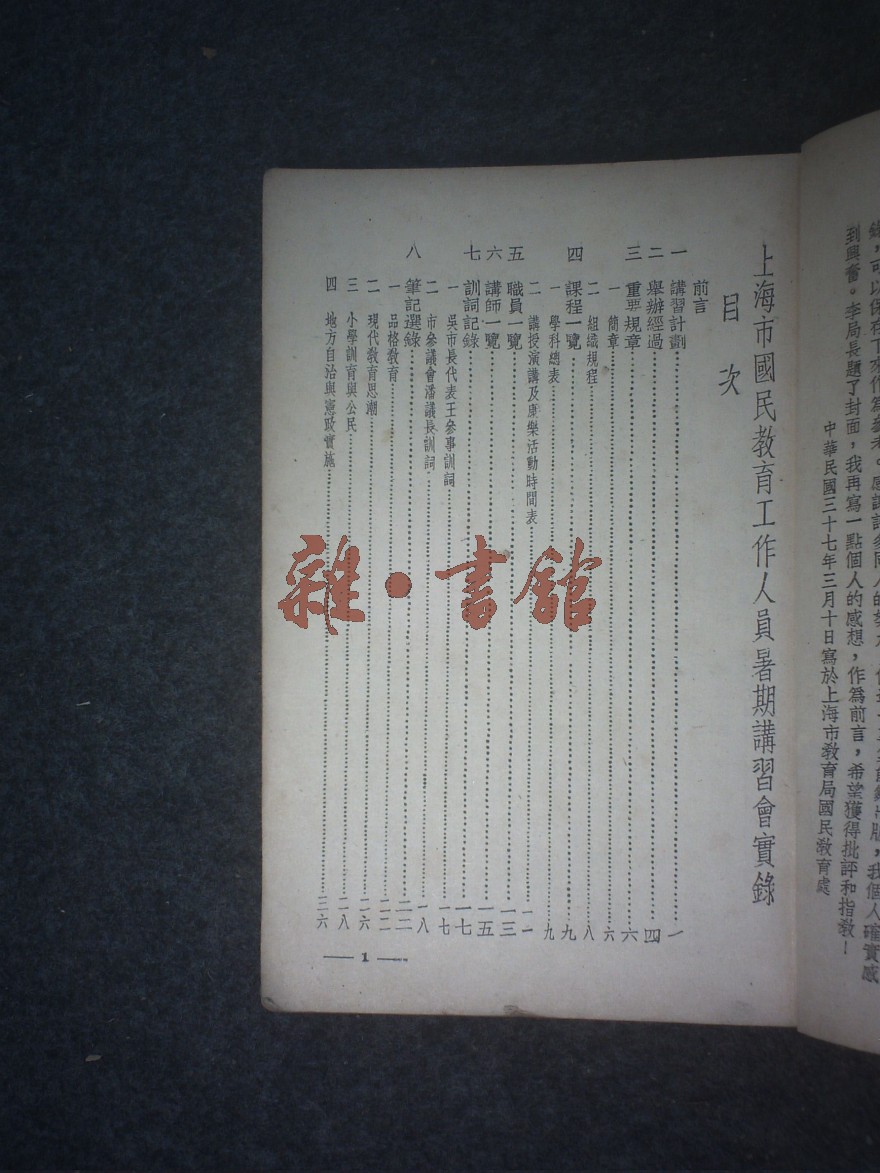 到興奮。李局長題了封面，我再寫一點個人的感想，作為前言，希望獲得批評和指教！
中華民國三十七年三月十日寫於上海市教育局國民教育處
上海市國民教育工作人員暑期講習會實錄
目次
前言
一 講習計劃 一
二 舉辦經過 四
三 重要規章 六
一 簡章 六
二 組織規程 八
四 課程一覽 九
一 學科總表 九
二 講授演講及康樂活動時間表 一一
五 職員一覽 一三
六 講師一覽 一五
七 訓詞記錄 一七
一 吳市長代表王參事訓詞 一七
二 市參議會潘議長訓詞 一八
八 筆記選錄 二二
一 品格教育 二二
二 現代教育思潮 二六
三 小學訓育與公民 二八
四 地方自治與憲政實施 三六
— 1 —
雜·書館